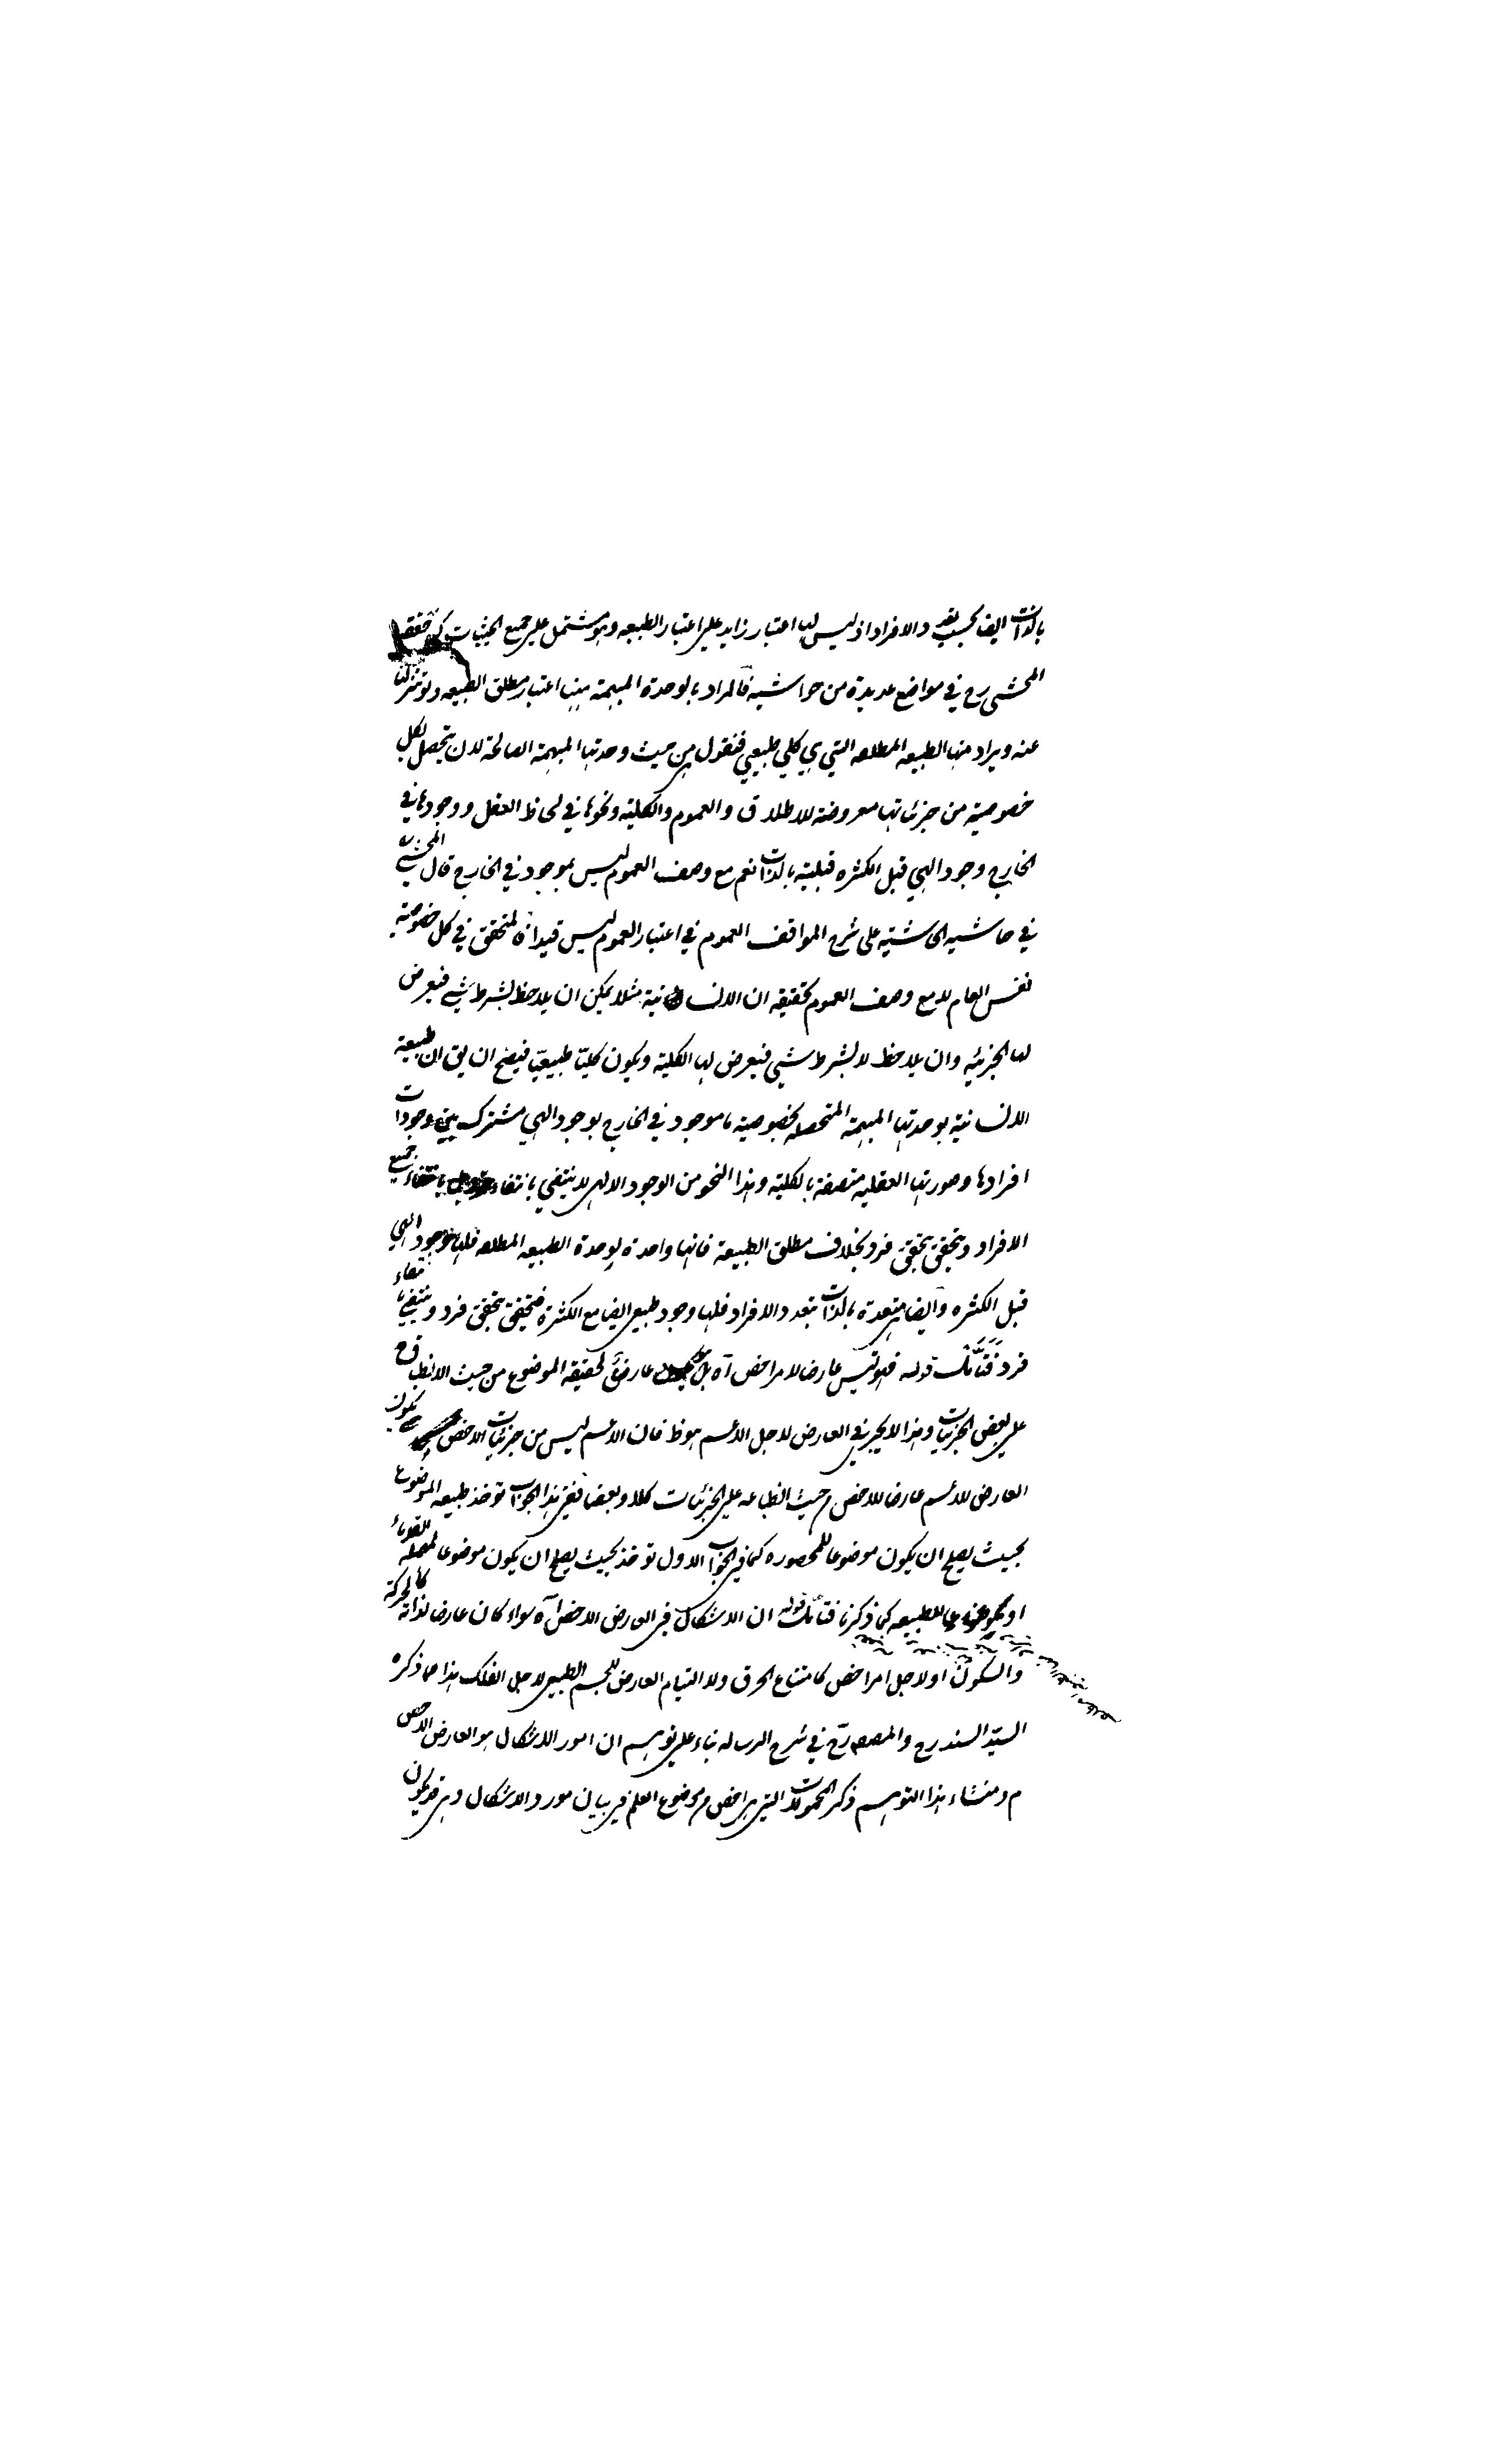 بالذات ايضا بحسب تعدد الافراد اذ ليس لها اعتبار زايد على اعتبار الطبيعه وهو مشتمل على جميع الحيثيات كما حققه
المحشى رح في مواضع عديدة من حواشيه فالمراد بالوحدة المبهمة ههنا اعتبار مطلق الطبيعه ولو تنزلنا
عنه ويراد منها الطبيعه المطلقه التي هي كلي طبيعي فنقول هي من حيث وحدتها المبهمة الصالحة لان يتحصل بكل
خصوصية من جزئياتها معروضة للاطلاق والعموم والكلية ونحوها في لحاظ العقل ووجودها في
الخارج وجود الهي قبل الكثره قبلية بالذات نعم مع وصف العموم ليس بموجود في الخارج قال المحشي
في حاشيه الحاشية على شرح المواقف العموم في اعتبار العموم ليس قيدا فالمتحقق في كل خصوصية
نفس العام لا مع وصف العموم تحقيقه ان الانسانية مثلا يمكن ان يلاحظ بشرط شيء فيعرض
لها الجزئيه وان يلاحظ لا بشرط شيء فيعرض لها الكلية ويكون كليا طبيعيا فيصح ان يق ان طبيعة
الانسانية بوحدتها المبهمة المتحصله بخصوصية ما موجود في الخارج بوجود الهي مشترك بين وجودات
افرادها وصورتها العقليه متصفة بالكلية وهذا النحو من الوجود الالهى لا ينتفي بانتفاء بل بانتفاء جميع
الافراد ويتحقق بتحقق فرد بخلاف مطلق الطبيعة فانها واحدة بوحدة الطبيعه المطلقه فلها وجود الهي
قبل الكثره وايضا متعددة بالذات بتعدد الافراد فلها وجود طبيعي ايضا مع الكثرة فيتحقق بتحقق فرد وينتفي بانتفاء
فرد فتأمل قوله فهو ليس عارضا لامر اخص آه بل هو عارض لحقيقه الموضوع من حيث الانطباق
على بعض الجزئيات وهذا لا يجري في العارض لاجل الاعم هو ظ فان الاعم ليس من جزئيات الاخص حتى يكون
العارض للاعم عارضا للاخص من حيث انطباعه على الجزئيات كلا او بعضا ففي هذا الجواب توخذ طبيعه الموضوع
بحيث يصلح ان يكون موضوعا للمحصوره كما في الجواب الاول توخذ بحيث يصلح ان يكون موضوعا لمهملة القدماء
او للطبيعه كما ذكرنا فتأمل قوله ان الاشكال في العارض الاخص آه سواء كان عارضا لذاته كالحركة
والسكون او لاجل امر اخص كامتناع الخرق والالتيام العارض للجسم الطبيعي لاجل الفلك هذا مما ذكره
السيد السند رح والمصم رح في شرح الرساله بناء على توهم ان مورد الاشكال هو العارض الاخص
م ومنشاء هذا التوهم ذكر المحمولات التي هي اخص من موضوع العلم في بيان مورد الاشكال وهي قد يكون